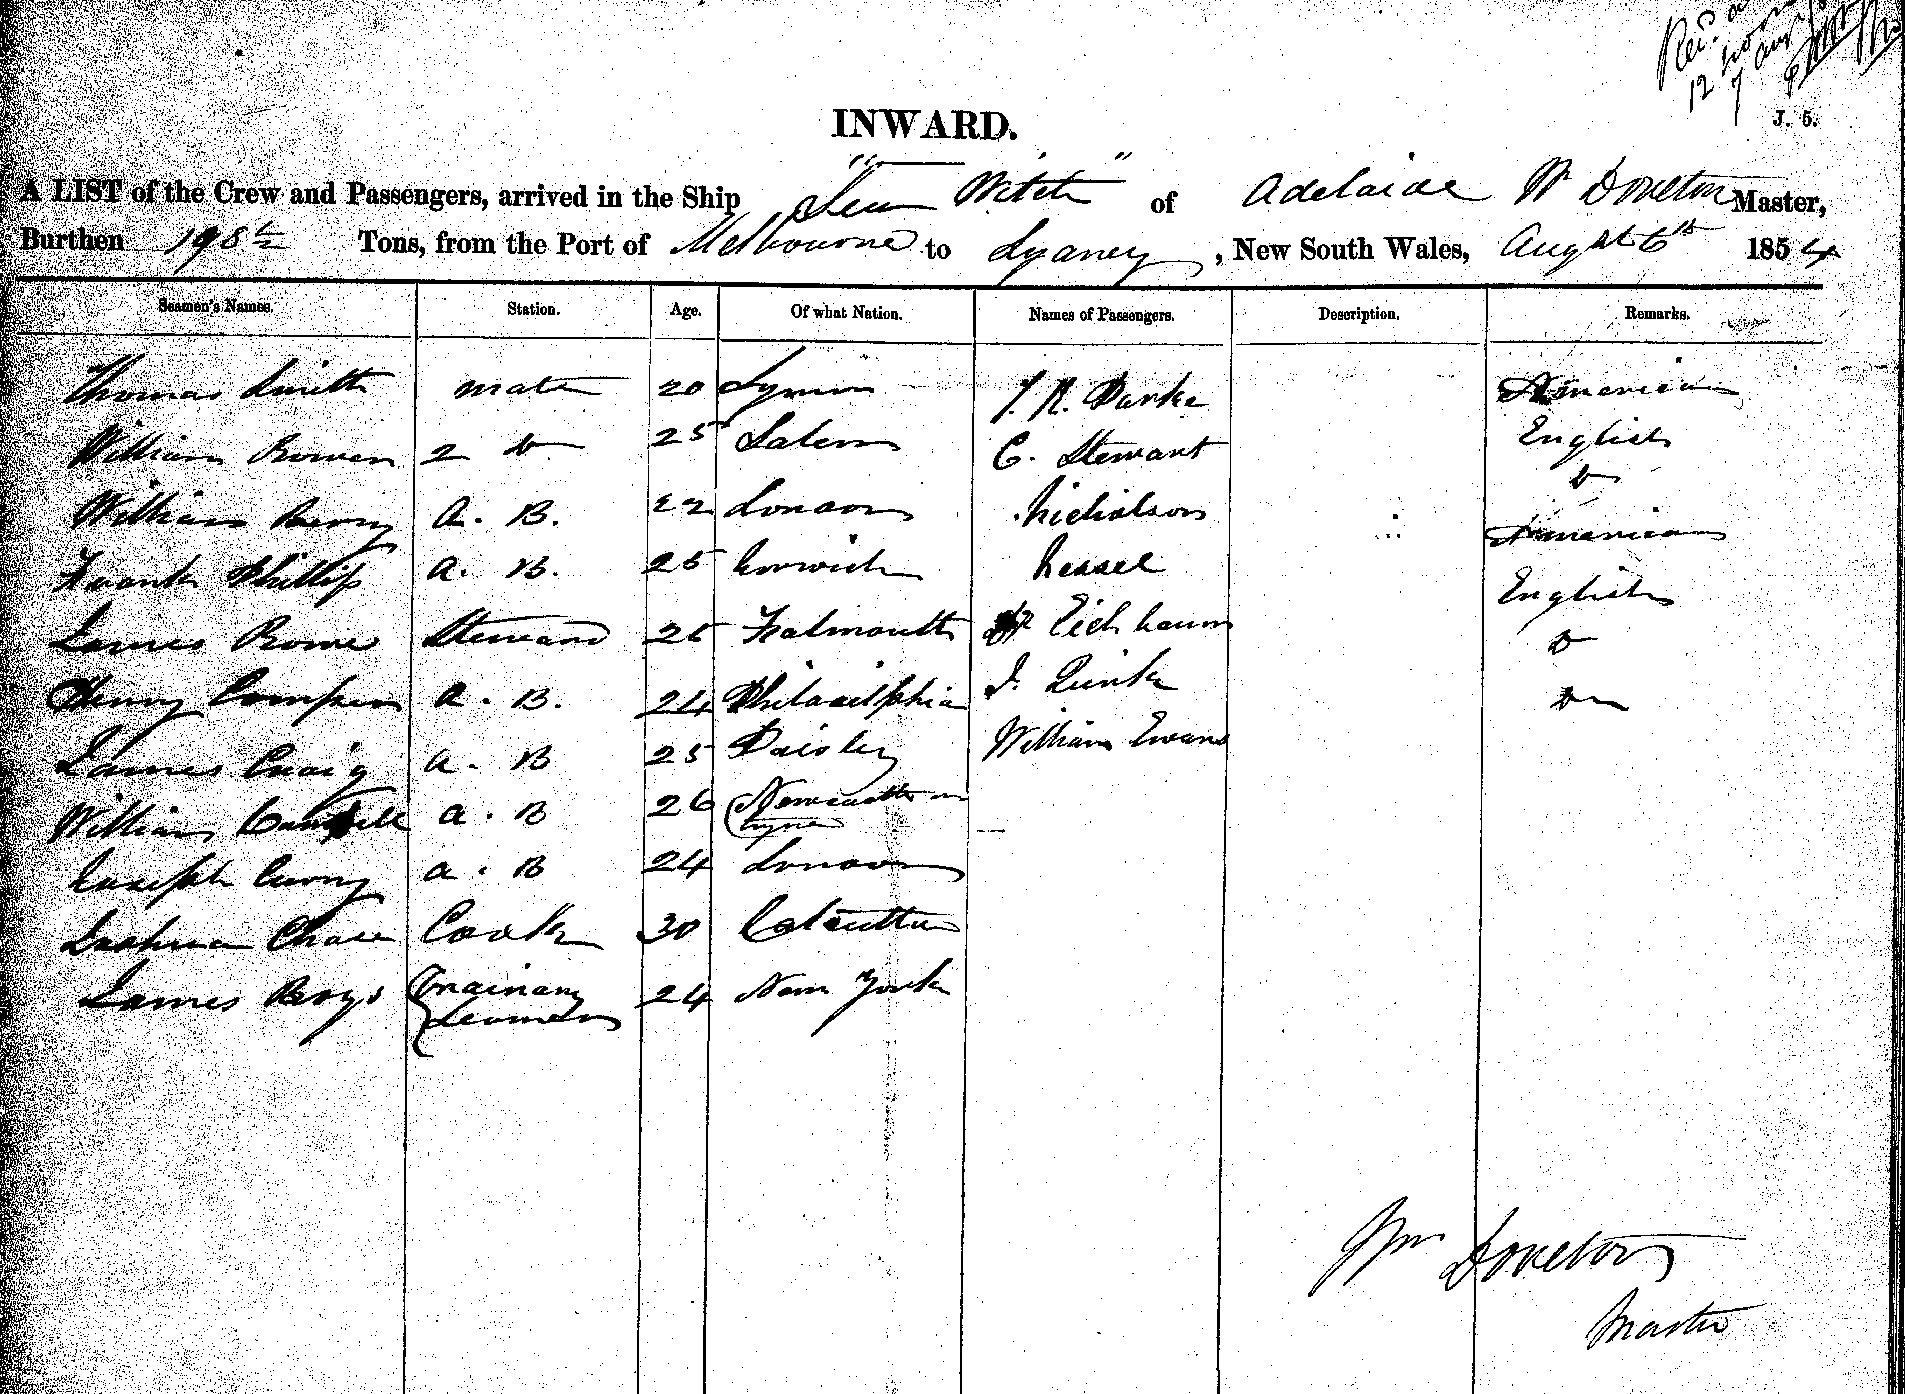 Rec.d
12 noon
7 Aug
J. 5.
INWARD.
A LIST of the Crew and Passengers, arrived in the Ship "Sea Witch" of Adelaide Wm Doveton Master,
Burthen 198 Tons, from the Port of Melbourne to Sydney, New South Wales, August 6th 1854
Seamen's Names. Station. Age. Of what Nation. Names of Passengers. Description. Remarks.
Thomas Smith mate 20 Lynn J. R. Parke American
William Bowen 2 Do 25 Salem C. Stewart English
William Berry A. B. 22 London Nicholson Do
Frank Phillips A. B. 25 Norwich Hessel American
James Rowe Steward 25 Falmouth Eichbaum English
Henry A. B. 24 Philadelphia J. Quirk Do
James Craig A. B 25 Paisley William Evans Do
William A. B 26 Newcastle on Tyne
Joseph Curry A. B 24 London
Joshua Chase Cook 30 Calcutta
James Boys Ordinary Seaman 24 New York
Wm Doveton
Master